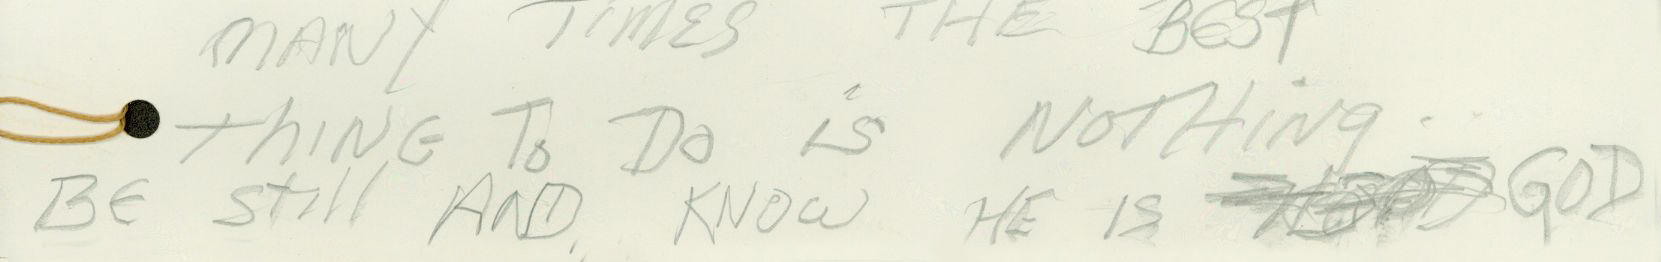 MANY TIMES THE BEST
thING To Do is NOTHing...
BE still AND KNOW HE IS GOD